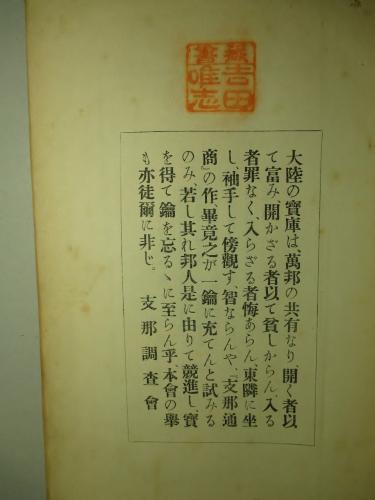 吉田
唯志
藏書
大陸の寶庫は、萬邦の共有なり、開く者以
て富み、開かざる者以て貧しからん、入る
者罪なく、入らざる者悔あらん、東隣に坐
し、袖手して傍觀す、智ならんや、『支那通
商』の作、畢竟之が一鑰に充てんと試みる
のみ、若し其れ邦人是に由りて競進し、寶
を得て鑰を忘るゝに至らん乎、本會の擧
も亦徒爾に非じ。
支那調査會